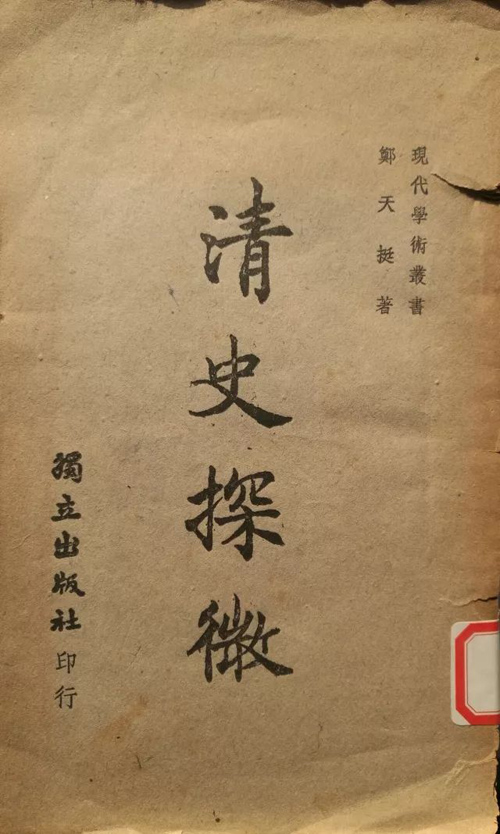 現代學術叢書
鄭天挺著
清史探微
獨立出版社印行